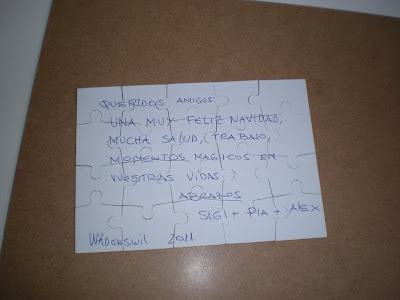 QUERIDOS AMIGOS:
UNA MUY FELIZ NAVIDAD,
MUCHA SALUD, TRABAJO,
MOMENTOS MAGICOS EN
VUESTRAS VIDAS.
ABRAZOS
SIGI + PIA + ALEX
WÄDENSWIL 2011